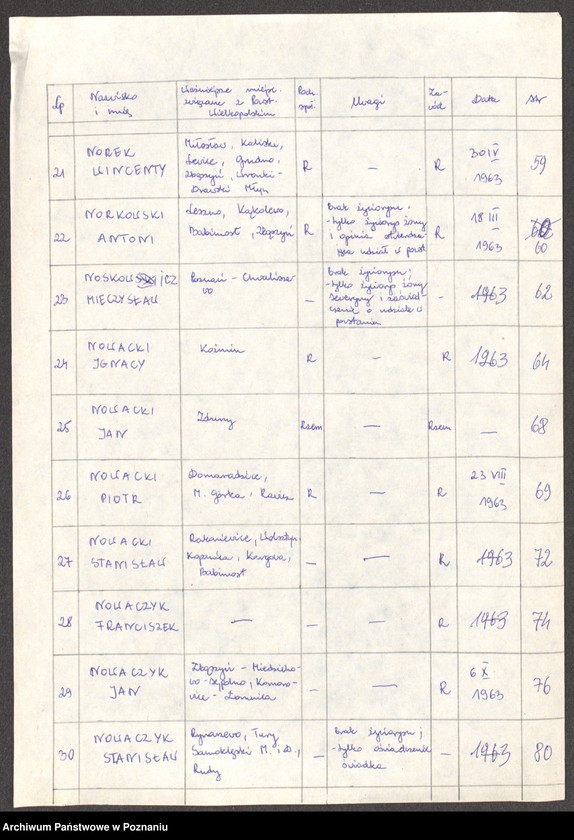 Lp Nazwisko i imię Ważniejsze miejsc. związane z Powst. Wielkopolskim Poch. społ. Uwagi Za-wód Data str
21 NOREK WINCENTY Miłosław, Kaliska, Lewice, Grudna, Zbąszyń, Wronki - Drawski Młyn R — R 30 IV 1963 59
22 NORKOWSKI ANTONI Leszno, Kąkolewo, Babimost, Zbąszyń R Brak życiorysu, - tylko życiorys żony i opinia o udział w powst. R 18 III 1963 60
23 MIECZYSŁAW Poznań - Chwaliszewo — Brak życiorysu; - tylko życiorys żony Seweryny i zaświadczenie o udziale w powstaniu — 1963 62
24 NOWACKI IGNACY Koźmin R — R 1963 64
25 NOWACKI JAN Zduny Rzem. — Rzem. — 68
26 NOWACKI PIOTR Domaradzice, M. Górka, Rawicz R — R 23 VIII 1963 69
27 NOWACKI STANISŁAW Rakoniewice, Wolsztyn Kopanica, Kargowa, Babimost — — R 1963 72
28 NOWACZYK FRANCISZEK — — — R 1963 74
29 NOWACZYK JAN Zbąszyń - Miedzichowo - Sępolno, Komorowice - Łomnica — — R 6 X 1963 76
30 NOWACZYK STANISŁAW Rynarzewo, Tury, Samoklęski M. i D., Rudy — Brak życiorysu; - tylko oświadczenie świadka — 1963 80
Archiwum Państwowe w Poznaniu